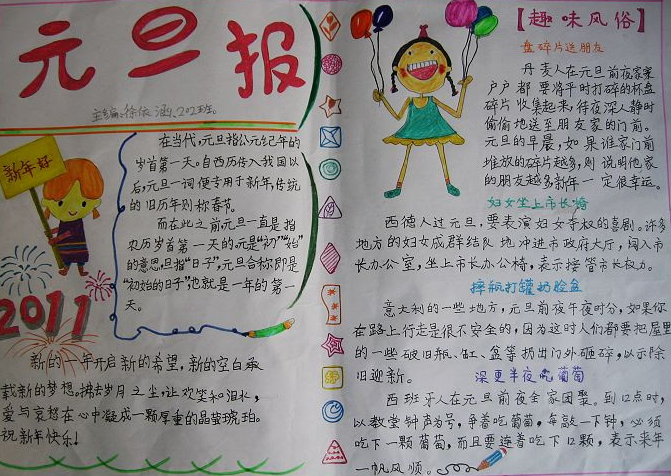 元旦报
主编:徐依涵、202班。
新年好
2011
在当代,元旦指公元纪年的
岁首第一天。自西历传入我国以
后,元旦一词便专用于新年,传统
的旧历年则称春节。
而在此之前元旦一直是指
农历岁首第一天的。元是“初”“始”
的意思,旦指“日子”,元旦合称即是
“初始的日子”也就是一年的第一
天。
新的一年开启新的希望,新的空白承
载新的梦想。拂去岁月之尘,让欢笑和泪水,
爱与哀愁在心中凝成一颗厚重的晶莹琥珀。
祝新年快乐!
【趣味风俗】
盘碎片送朋友
丹麦人在元旦前夜家家
户户都要将平时打碎的杯盘
碎片收集起来,待夜深人静时
偷偷地送至朋友家的门前。
元旦的早晨,如果谁家门前
堆放的碎片越多,则说明他家
的朋友越多新年一定很幸运。
妇女坐上市长椅
西德人过元旦,要表演妇女夺权的喜剧。许多
地方的妇女成群结队地冲进市政府大厅,闯入市
长办公室,坐上市长办公椅,表示接管市长权力。
摔瓶打罐扔脸盆
意大利的一些地方,元旦前夜午夜时分,如果你
在路上行走是很不安全的,因为这时人们都要把屋里
的一些破旧瓶、缸、盆等扔出门外砸碎,以示除
旧迎新。
深更半夜吃葡萄
西班牙人在元旦前夜全家团聚。到12点时,
以教堂钟声为号,争着吃葡萄,每敲一下钟,必须
吃下一颗葡萄,而且要连着吃下12颗,表示来年
一帆风顺。